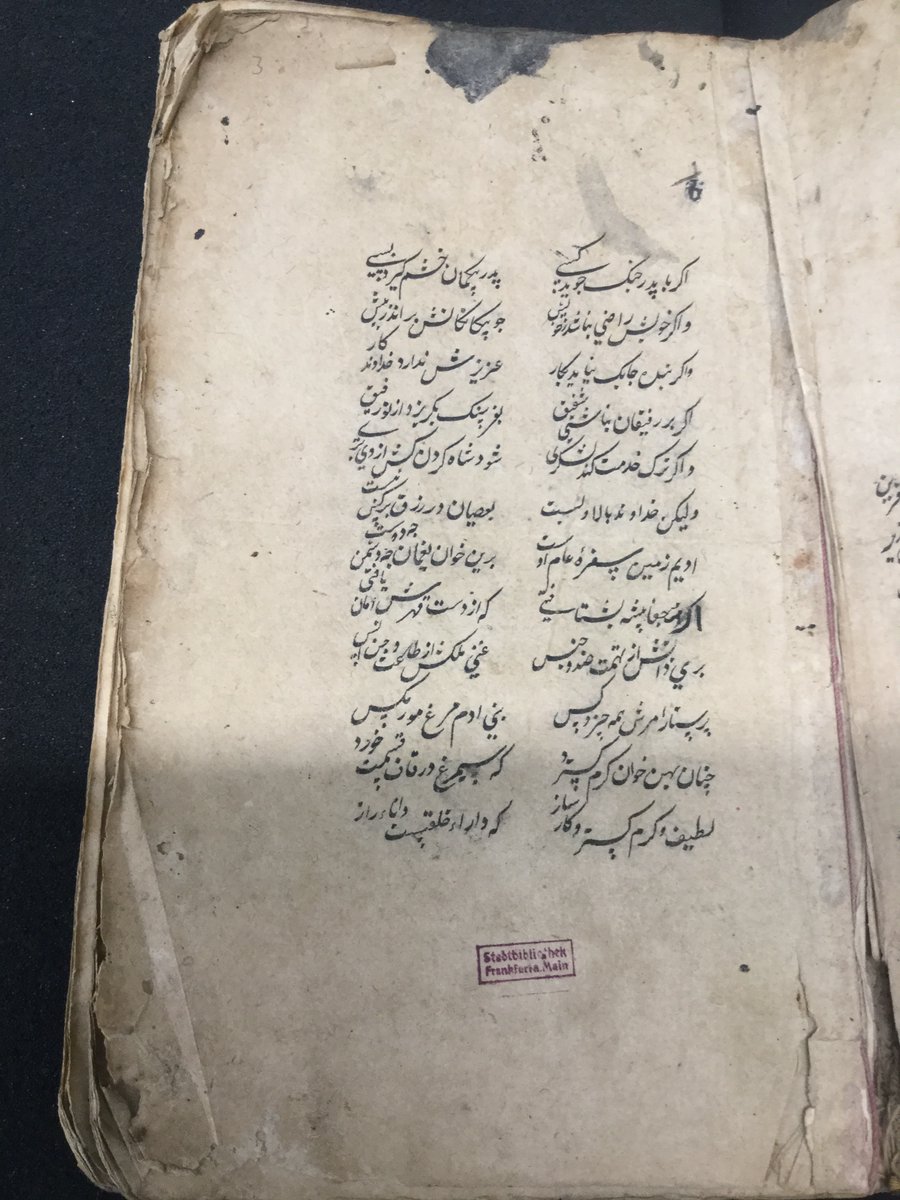 3
اکر با پدر جنک جوید کسی پدر بیکمان خشم کیرد بسی
و اکر خویش راضی نباشد ز خویش جو بیکانکانش براند ز پیش
و اکر بنده جابک نیاید بکار عزیزش ندارد خداوندکار
اکر بر رفیقان نباشی شفیق بفرسنک بکریزد از تو رفیق
و اکر ترک خدمت کند لشکری شود شاه کردن کش از وی بری
ولیکن خداوند بالا و پست بعصیان در رزق بر کس نبست
ادیم زمین سفرهٔ عام اوست برین خوان یغما جه دشمن جه دوست
اکر جفا پیشه بشتافتی که از دست قهرش امان یافتی
بری ذاتش از تهمت ضد و جنس غنی ملکش از طاعت جن و انس
پرستار امرش همه چیز و کس بنی ادم مرغ مور مکس
چنان پهن خوان کرم کسترد که سیمرغ در قاف قسمت خورد
لطیف و کرم کستر و کارساز که داراء خلقست داناء راز
Stadtbibliothek
Frankfurt a. Main